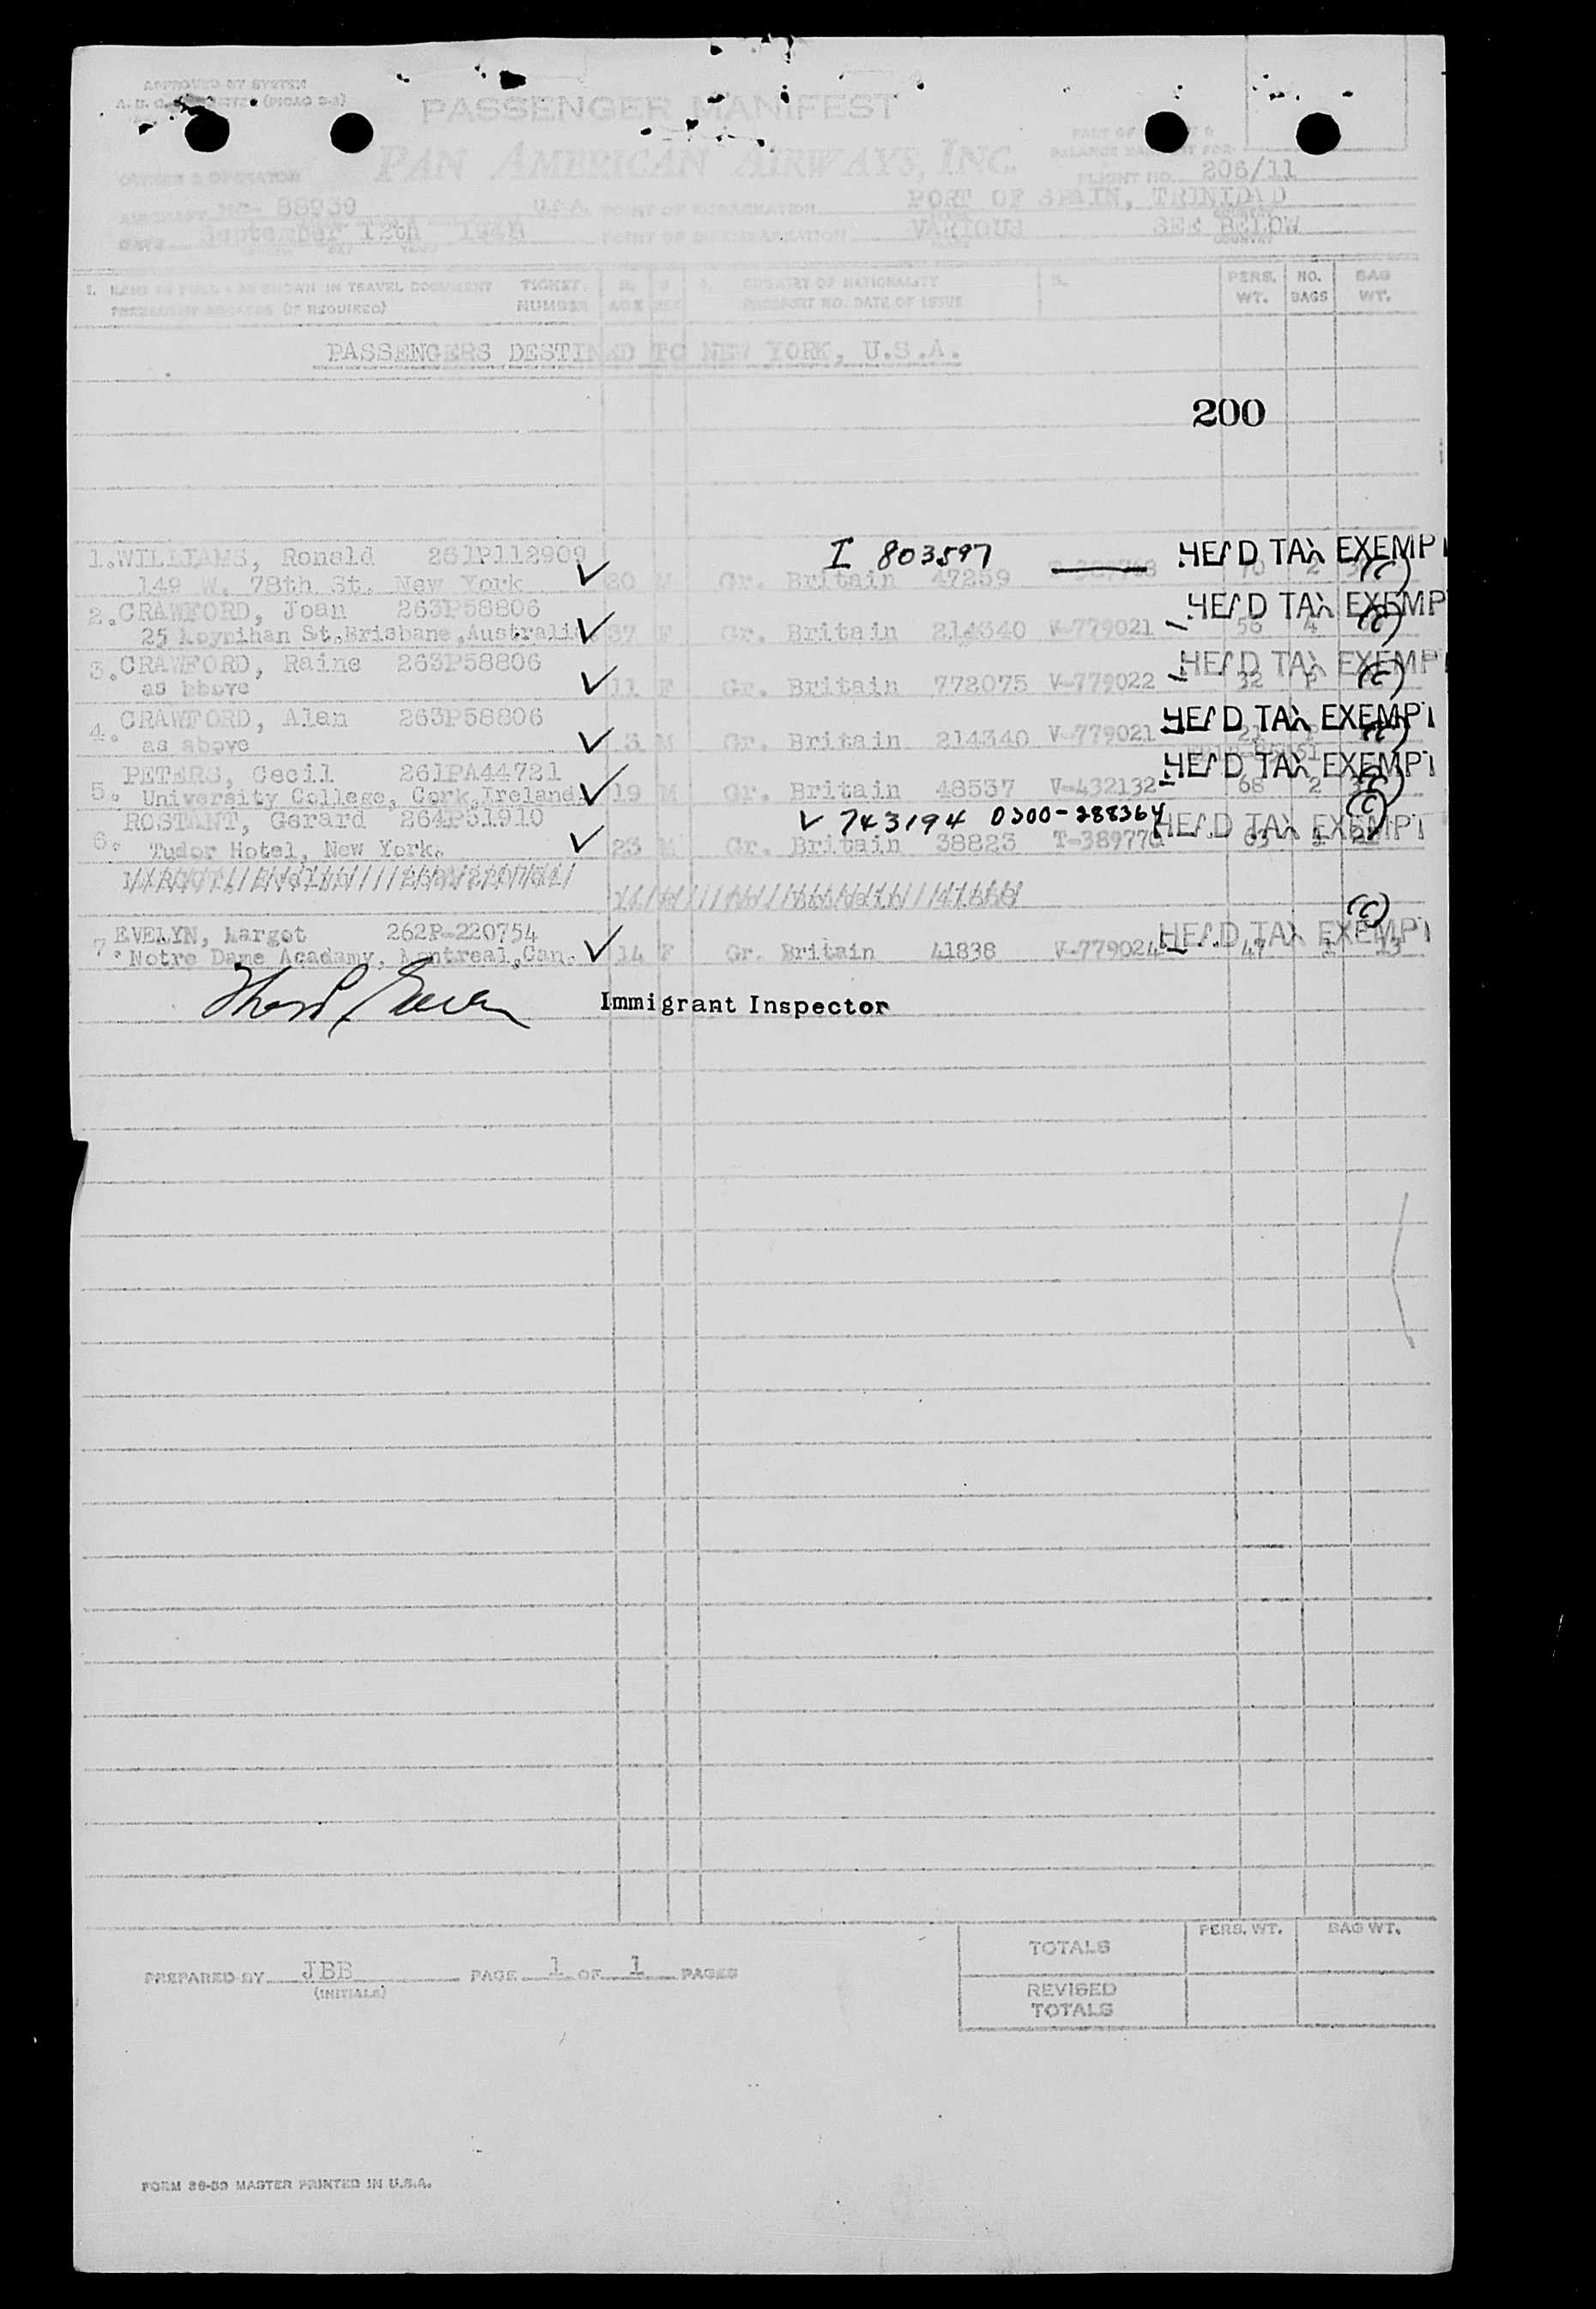 APPROVED BY SYSTEM
(PICAO
PASSENGER MANIFEST
PAN AMERICAN AIRWAYS, INC.
PART OF
OWNER & OPERATOR
BALANCE FOR
FLIGHT NO. 206/11
AIRCRAFT NC- 88939 U.S.A. POINT OF EMBARKATION PORT OF SPAIN, TRINIDAD
DATE September 12th 1948 POINT OF DISEMBARKATION VARIOUS SEE BELOW
COUNTRY
1. NAME IN FULL - AS SHOWN IN TRAVEL DOCUMENT TICKET COUNTRY OF NATIONALITY PERS. NO. BAG
(IF REQUIRED) NUMBER AGE SEX PASSPORT NO. DATE OF ISSUE WT. BAGS WT.
PASSENGERS DESTINED TO NEW YORK, U.S.A.
200
1. WILLIAMS, Ronald 261P112909 I 803597 HEAD TAX EXEMPT
149 W. 78th St. New York 20 M Gr. Britain 47259
2. CRAWFORD, Joan 263P58806 HEAD TAX EXEMP
25 Moynihan St,Brisbane,Australia 37 F Gr. Britain 214340 V-779021 56 4
3. CRAWFORD, Raine 263P58806 HEAD TAX EXEMPT
as above 11 F Gr. Britain 772075 V-779022 32 P
4. CRAWFORD, Alan 263P58806 HEAD TAX EXEMPT
as above 3 M Gr. Britain 214340 V-779021 21
5. PETERS, Cecil 261PA44721 HEAD TAX EXEMPT
University College, Cork,Ireland. 19 M Gr. Britain 48537 V-432132 68 2
6. ROSTANT, Gerard 264P51910 V 743194 0300-288364 HEAD TAX EXEMPT
Tudor Hotel, New York. 23 M Gr. Britain 38823 T-389770 63 1
7. EVELYN, Margot 262P-220754 HEAD TAX EXEMPT
Notre Dame Acadamy, Montreal,Can. 14 F Gr. Britain 41838 V-779024 47 1 13
Immigrant Inspector
PERS. WT. BAG WT.
TOTALS
PREPARED BY JBB PAGE 1 OF 1 PAGES
(INITIALS)
REVISED
TOTALS
FORM 36-50 MASTER PRINTED IN U.S.A.